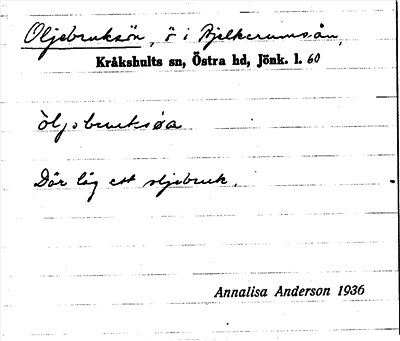 Oljebruksön, ö i Bjelkerumsån,
Kråkshults sn, Östra hd, Jönk. l. 60
òljebruksöa
Där låg ett oljebruk.
Annalisa Anderson 1936